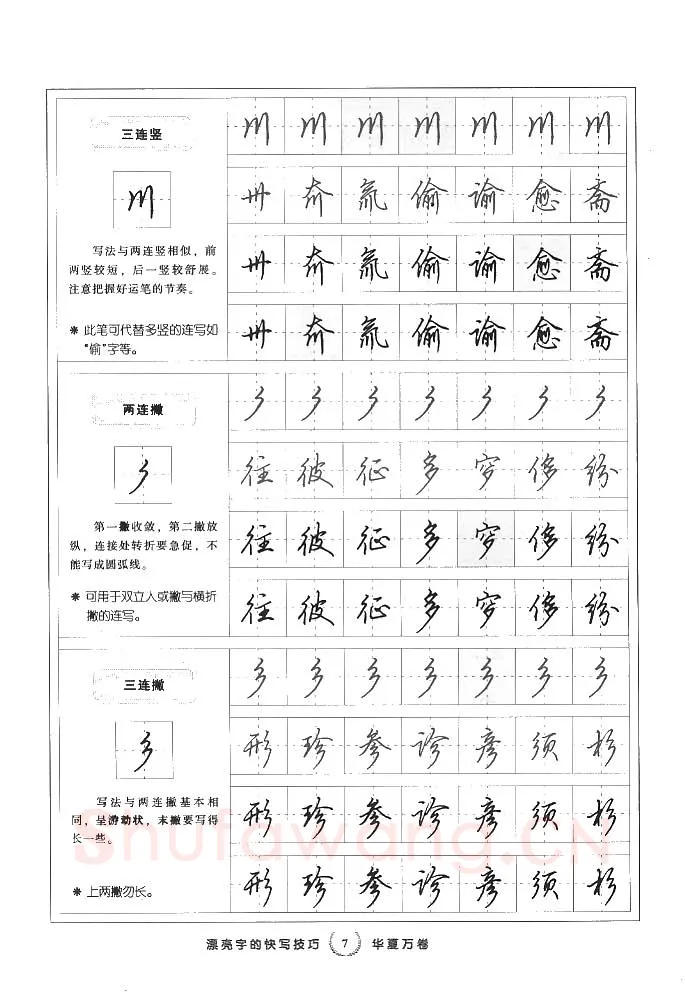 三连竖
川 川 川 川 川 川 川
川
卅 斎 氚 偷 谕 愈 斋
写法与两连竖相似，前
两竖较短，后一竖较舒展。
注意把握好运笔的节奏。
氚 偷 谕 愈 斋
※ 此笔可代替多竖的连写如
“偷”字等。
氚 偷 谕 愈 斋
两连撇
往 彼 征 多 穿 修 纷
第一撇收敛，第二撇放
纵，连接处转折要急促，不
能写成圆弧线。
往 彼 征 多 穿 修 纷
※ 可用于双立人或撇与横折
撇的连写。
往 彼 征 多 穿 修 纷
三连撇
形 珍 参 诊 彦 须 杉
写法与两连撇基本相
同，呈游动状，末撇要写得
长一些。
形 珍 参 诊 彦 须 杉
※ 上两撇勿长。
形 珍 参 诊 彦 须 杉
Shufawang.CN
漂亮字的快写技巧 7 华夏万卷